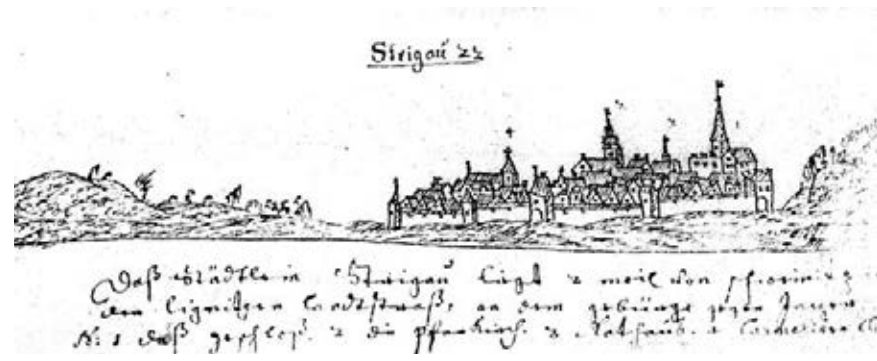 Strigau 22
Daß Städtlein Strigau liegt 2 meil von
der lignitzer landtstraß, an dem gebürge gegen Jauer
N: 1 daß geschloß. 2 die Pfarrkirch. 3 Rathauß. 4 Carmeliter